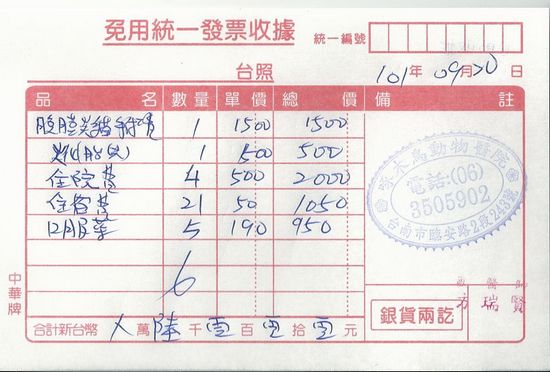 免用統一發票收據
統一編號
台照
101年 09月20日
品名 數量 單價 總價 備註
1 1500 1500
1 500 500
住院費 4 500 2000
住宿費 21 50 1050
口服藥 5 190 950
木馬動物醫院
電話:(06)
3505902
台南市臨安路2段243號
獸醫師
方瑞賢
銀貨兩訖
中華牌
合計新台幣 萬 陸 千 百 拾 元